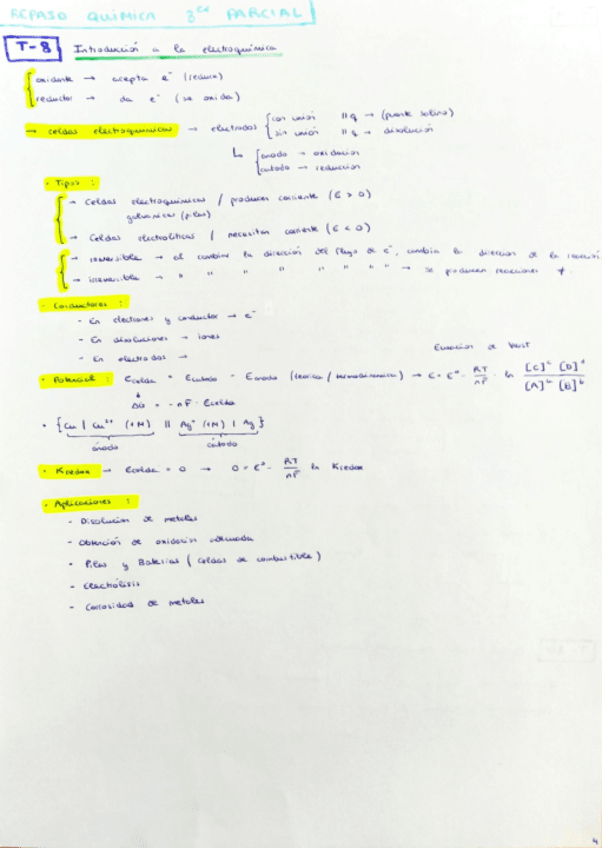 REPASO QUÍMICA 3er PARCIAL
T-8 Introducción a la electroquímica
oxidante → acepta e⁻ (reduce)
reductor → da e⁻ (se oxida)
→ Celdas electroquímicas → electrodos { con unión llq → (puente salino)
sin unión llq → disolución
↳ { ánodo → oxidación
cátodo → reducción
· Tipos :
→ Celdas electroquímicas / producen corriente (E > 0)
galvánicas (pilas)
→ Celdas electrolíticas / necesitan corriente (E < 0)
→ al cambiar la dirección del flujo de e⁻, cambia la dirección de la
→ irreversible → " " " " " " " " → se producen reacciones ≠.
· Conductores :
- En electrones y conductor → e⁻
- En disoluciones → iones
- En electrodos →
Ecuación de
· Potencial : Ecelda = Ecátodo - Eánodo (teórica / termodinámica) → E = E° - RT/nF · ln [C]ᶜ [D]ᵈ / [A]ᵃ [B]ᵇ
ΔG = - nF · Ecelda
· { Cu | Cu²⁺ (1M) || Ag⁺ (1M) | Ag }
ánodo cátodo
· Kredox → Ecelda = 0 → 0 = E° - RT/nF ln Kredox
· Aplicaciones :
- Disolución de metales
- Obtención de oxidación
- Pilas y Baterías (Celdas de combustible)
- Electrólisis
- Corrosidad de metales
4